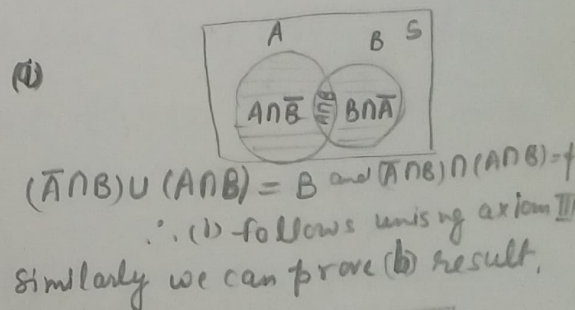 A
B S
(i)
A∩B̅ A∩B B∩A̅
(A̅∩B)∪(A∩B) = B and (A̅∩B)∩(A∩B)=ϕ
∴ (i) follows unisng axiom III
Similarly we can prove (b) result.